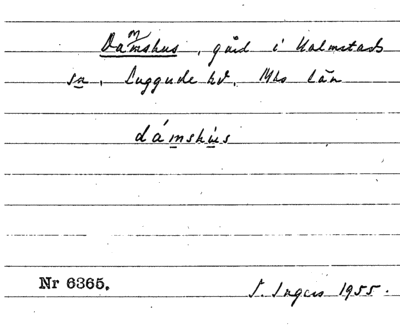 Dammshus, gård i Halmstads
sn, Luggude hd. Mhs län
dámshu̇s
Nr 6365.
I. Ingers 1955.